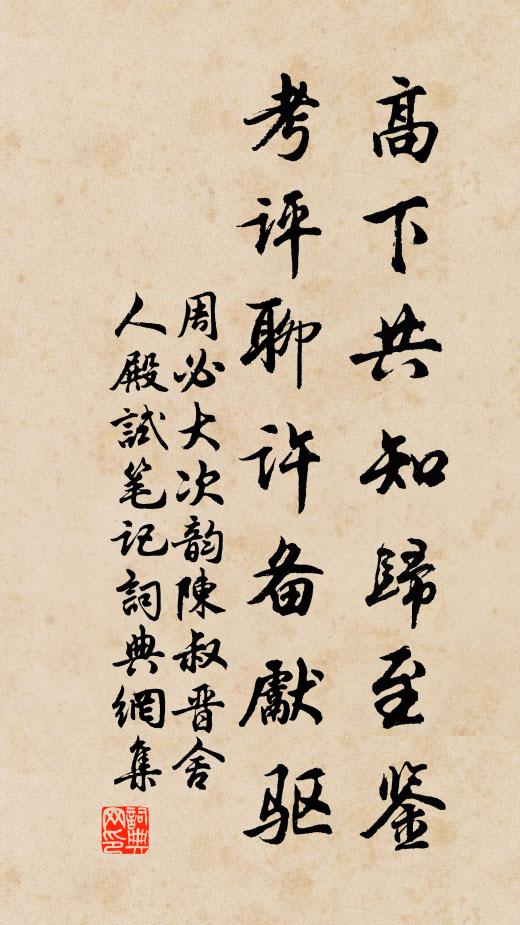 高下共知歸至鉴
考评聊许备獻驱
周必大次韵陳叔晋舍
人殿試笔记詞典網集
詞典
网印